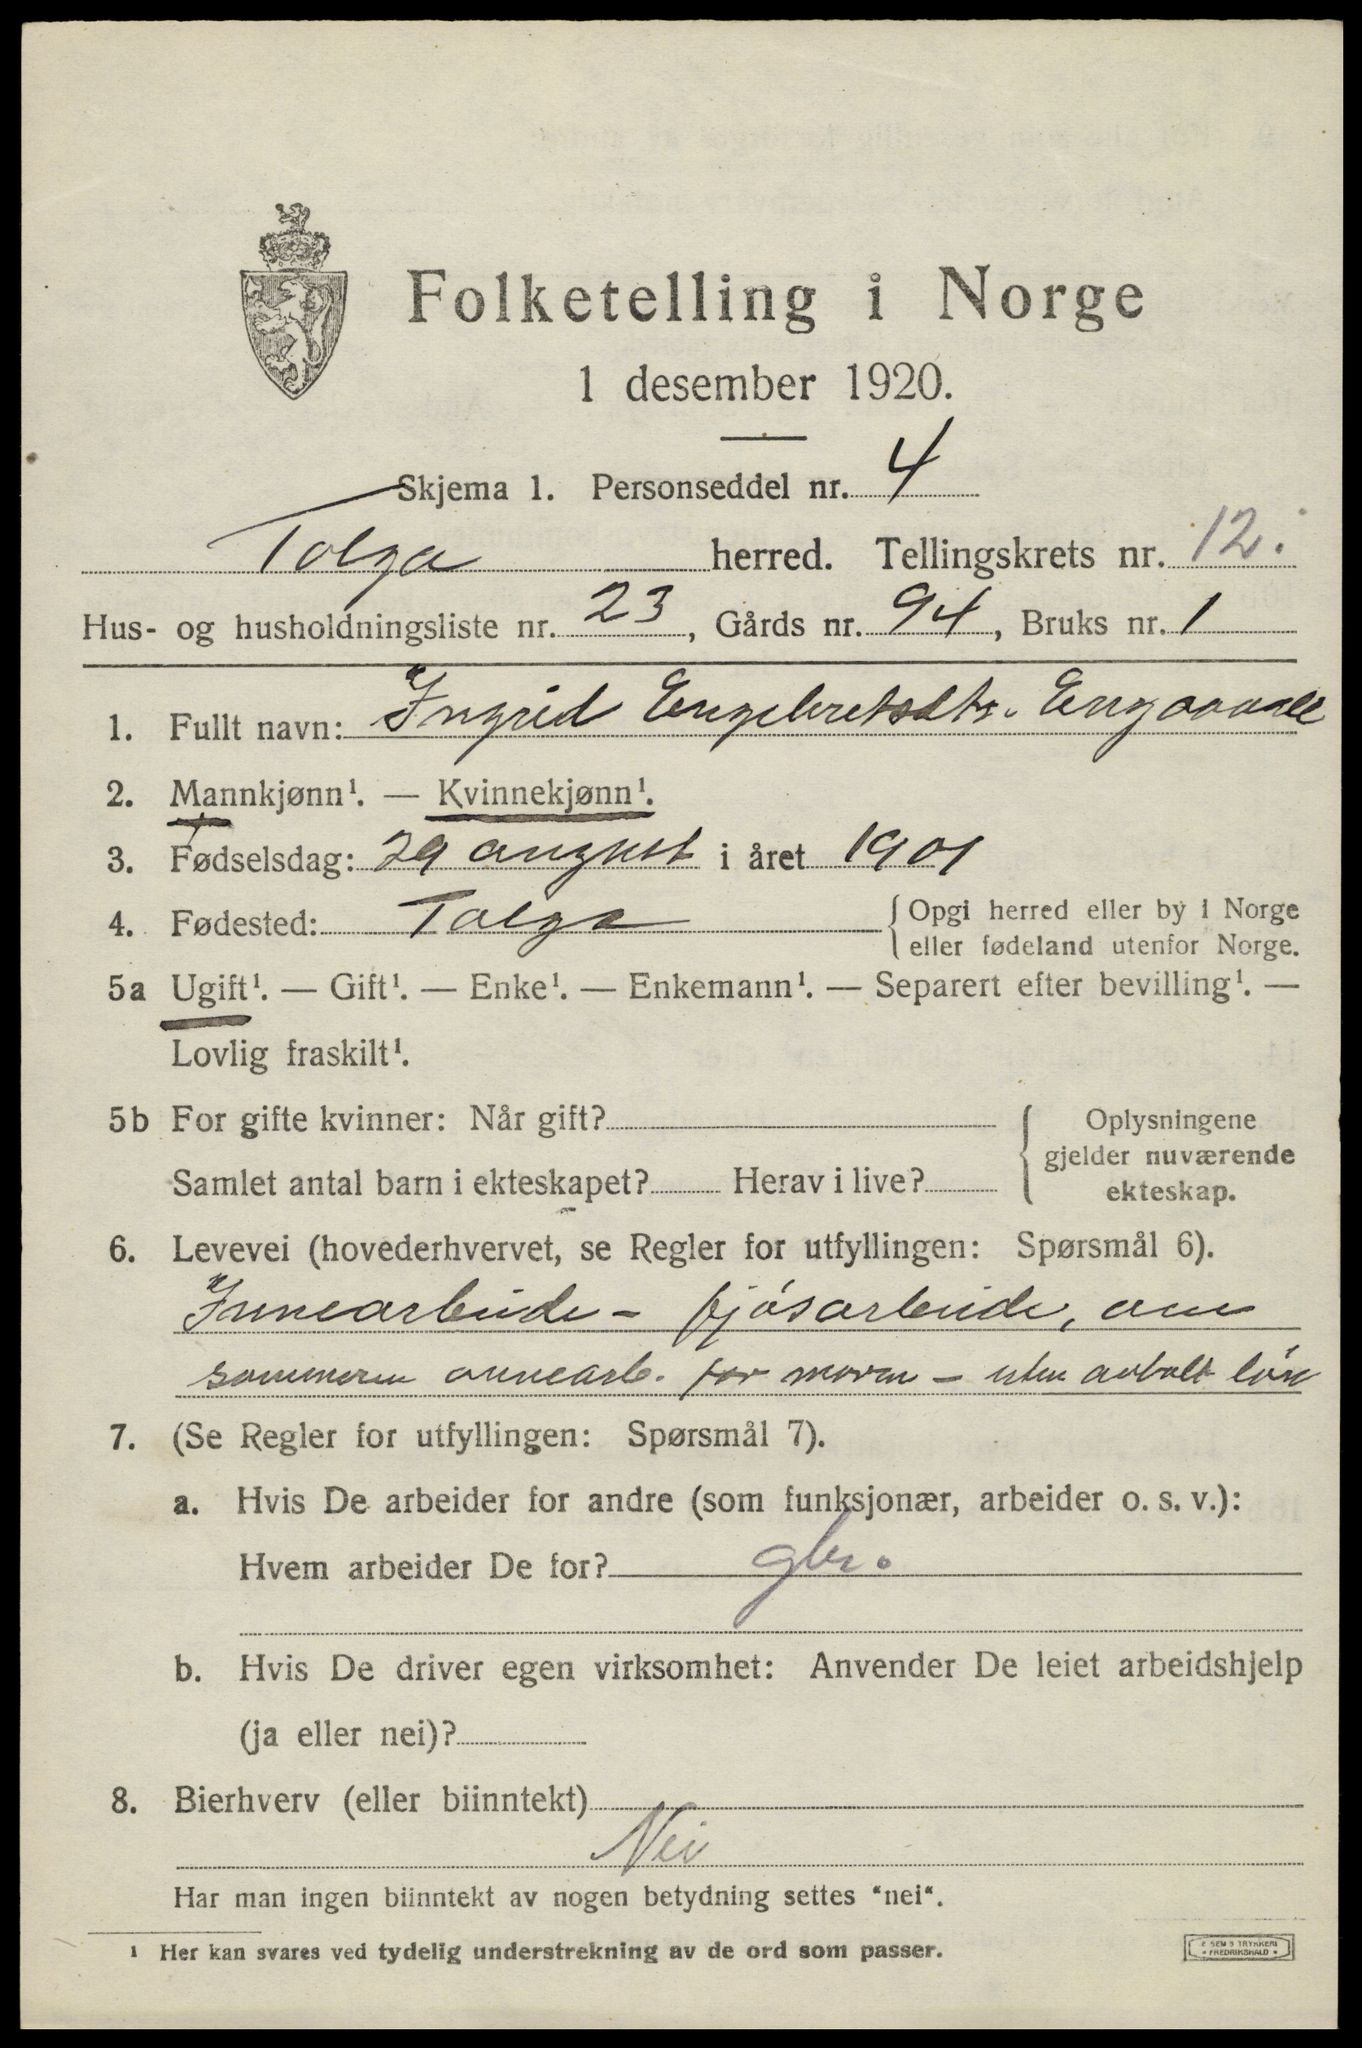 Folketelling i Norge
1 desember 1920.
Skjema 1. Personseddel nr. 4
Tolga herred. Tellingskrets nr. 12.
Hus- og husholdningsliste nr. 23, Gårds nr. 94, Bruks nr. 1
1. Fullt navn: Ingrid Engebretsdtr.
2. Mannkjønn¹. — Kvinnekjønn¹.
3. Fødselsdag: 29 august i året 1901
4. Fødested: Tolga {Opgi herred eller by i Norge
eller fødeland utenfor Norge.
5a Ugift¹. — Gift¹. — Enke¹. — Enkemann¹. — Separert efter bevilling¹. —
Lovlig fraskilt¹.
5b For gifte kvinner: Når gift? { Oplysningene
gjelder nuværende
Samlet antal barn i ekteskapet? Herav i live? ekteskap.
6. Levevei (hovederhvervet, se Regler for utfyllingen: Spørsmål 6).
Innearbeide - fjøsarbeide, om
sommeren onnearb. for moren - uten avtalt løn
7. (Se Regler for utfyllingen: Spørsmål 7).
a. Hvis De arbeider for andre (som funksjonær, arbeider o. s. v.):
Hvem arbeider De for? gbr.
b. Hvis De driver egen virksomhet: Anvender De leiet arbeidshjelp
(ja eller nei)?
8. Bierhverv (eller biinntekt)
Nei
Har man ingen biinntekt av nogen betydning settes “nei“.
¹ Her kan svares ved tydelig understrekning av de ord som passer.
SEM S TRYKKERI
FREDRIKSHALD